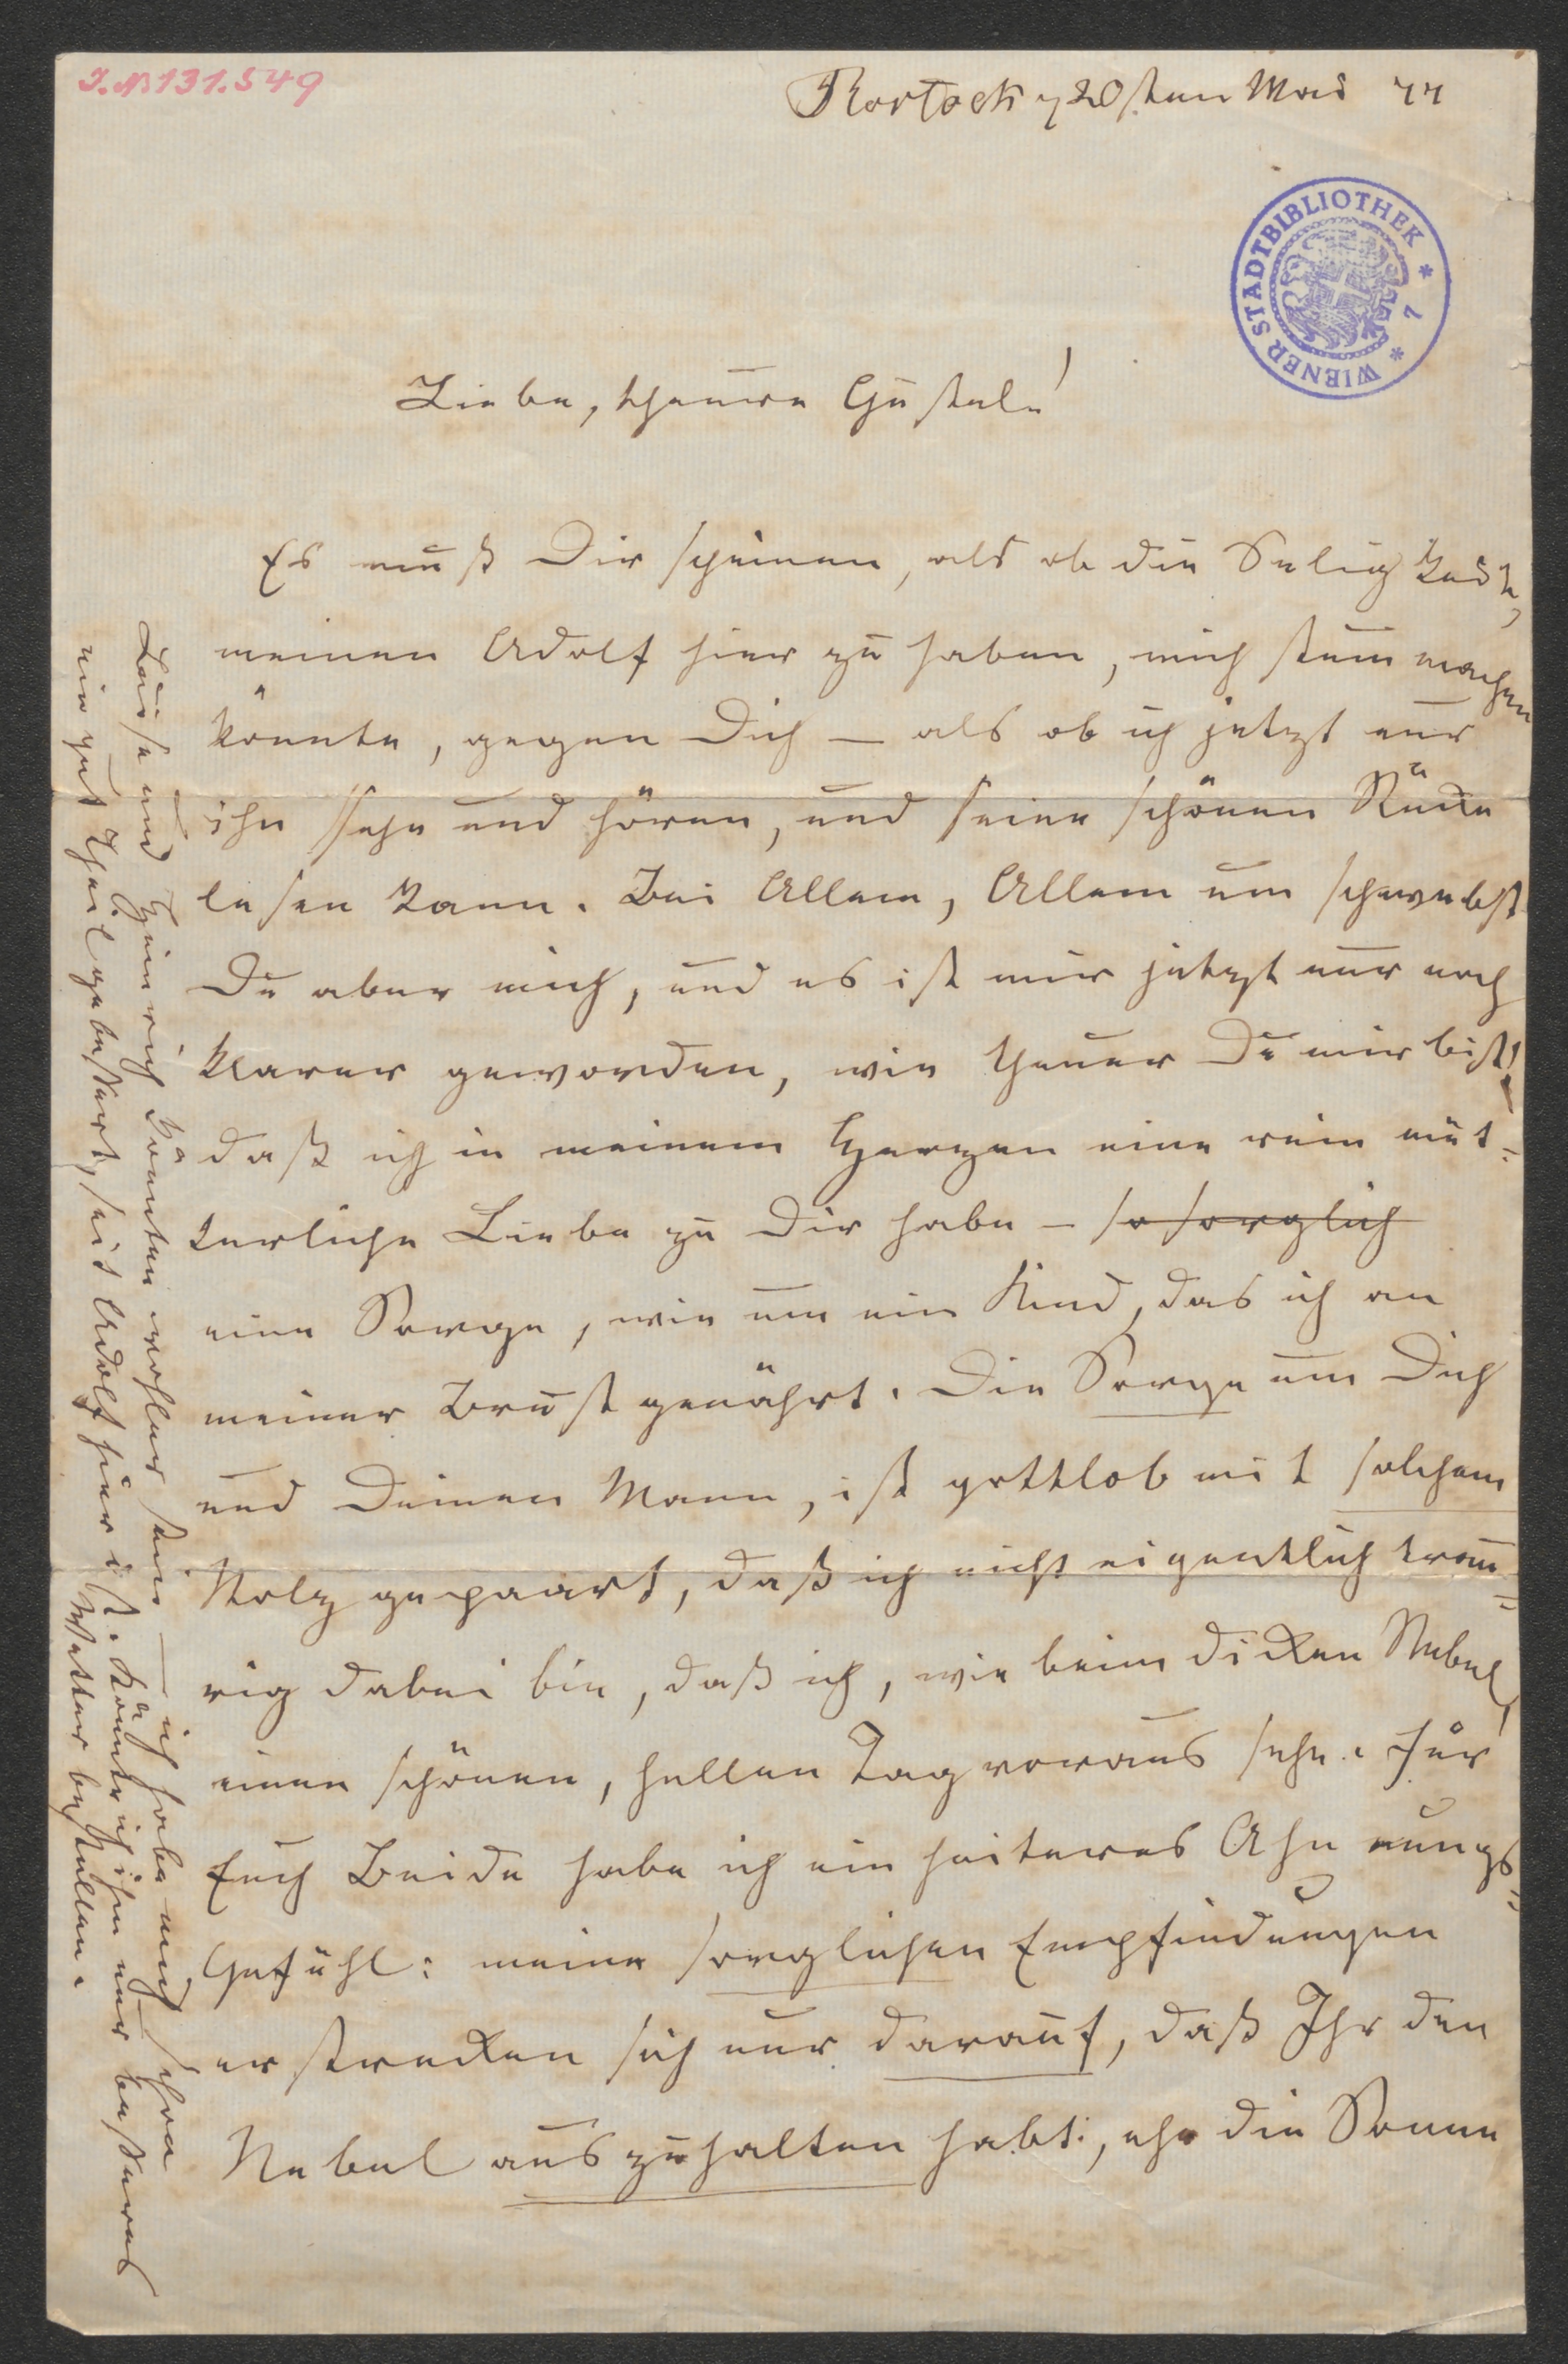 I.N 131.549
Rostock, 20sten Mai 77
WIENER STADTBIBLIOTHEK * 7 *
Liebe, theure Gustele!
Es muß Dir scheinen, als ob die Seligkeit,
meinen Adolf hier zu haben, mich stum machen
könnte, gegen Dich — als ob ich jetzt nur
ihn sehn und hören, und seine schönen Stücke
lesen kann. Bei Allem, Allem um schwebst
Du aber mich, und es ist mir jetzt nur noch
klarer geworden, wie theuer Du mir bist!
daß ich in meinem Herzen eine rein müt=
terliche Liebe zu Dir habe — so sorglich
eine Sorge, wie um ein Kind, das ich an
meiner Brust genährt. Die Sorge um Dich
und Deinen Mann, ist gottlob mit solchem
Stolz gepaart, daß ich nicht eigentlich trau=
rig dabei bin, daß ich, wie beim dicken Nebel,
einen schönen, hellen Tag voraus sehe. Für
Euch Beide habe ich ein heiteres Ahnungs=
Gefühl: meine sorglichen Empfindungen
erstrecken sich nur darauf, daß Ihr den
Nebel auszuhalten habt, ehe die Sonne
Luise und Heinrich könnten wohler sein — ich habe mich schon
ein gut Theil gebessert, seit Adolf hier ist. Könnte ich ihm nur besseres
Wetter bestellen.